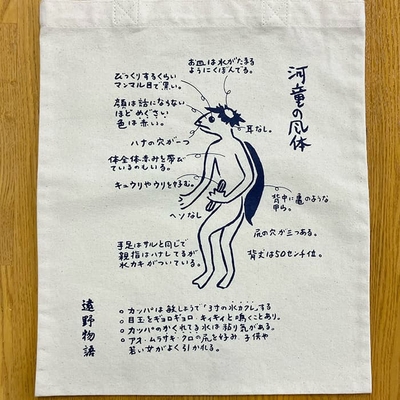 河童の風体
お皿は水がたまる
ようにくぼんでる。
びっくりするくらい
マンマル目で黒い。
顔は話にならない
ほどめぐさい
色は赤い。
耳なし。
ハナの穴が一つ
体全体赤みを帯びて
いるのもいる。
キュウリやウリを好む。
ヘソなし
背中に亀のような
甲ら。
尻の穴が三つある。
背丈は50センチ位。
手足はサルと同じで
親指はハナレてるが
水カキがついている。
遠野物語
○カッパは敏しょうで「3寸の水カクレ」する
○目玉をギョロギョロ・キィキィと鳴くことあり。
○カッパのかくれてる水は粘り気がある。
○アオ・ムラサキ・クロの尻を好み、子供や
若い女がよく引かれる。